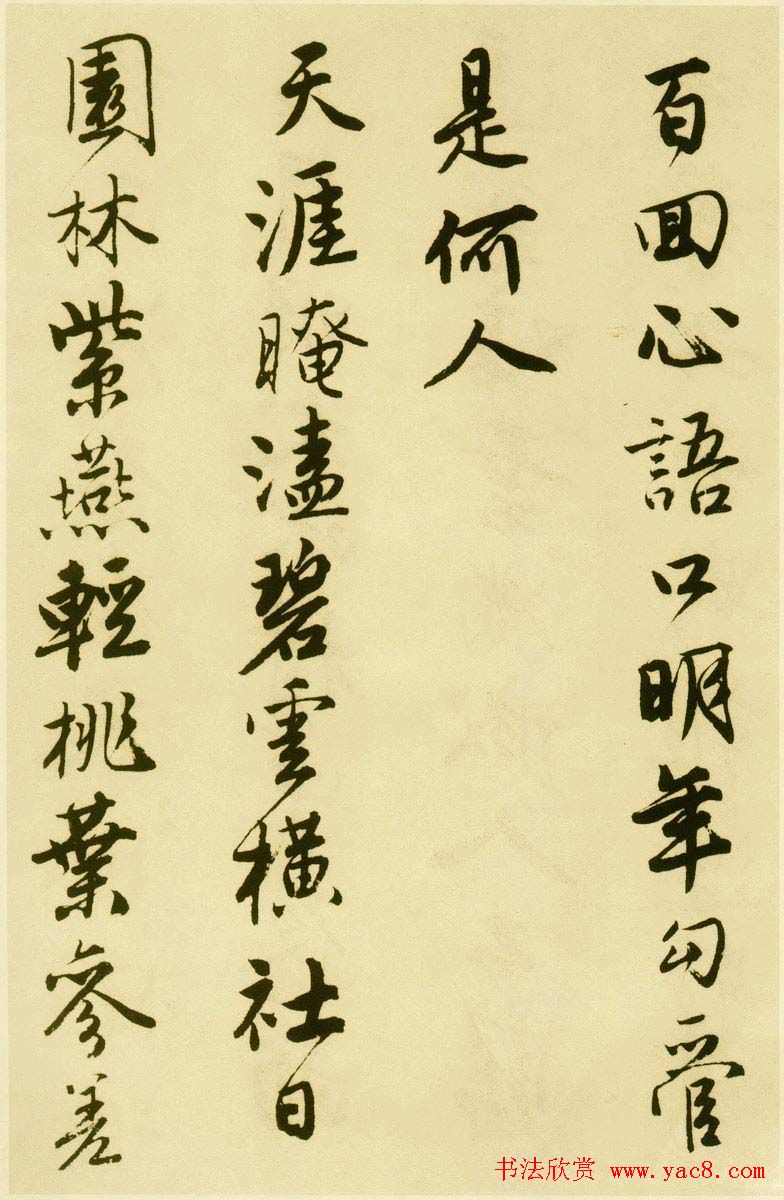 百回心語口明年勾管
是何人
天涯晻溘碧雲橫社日
園林紫燕輕桃葉參差
书法欣赏 www.yac8.com